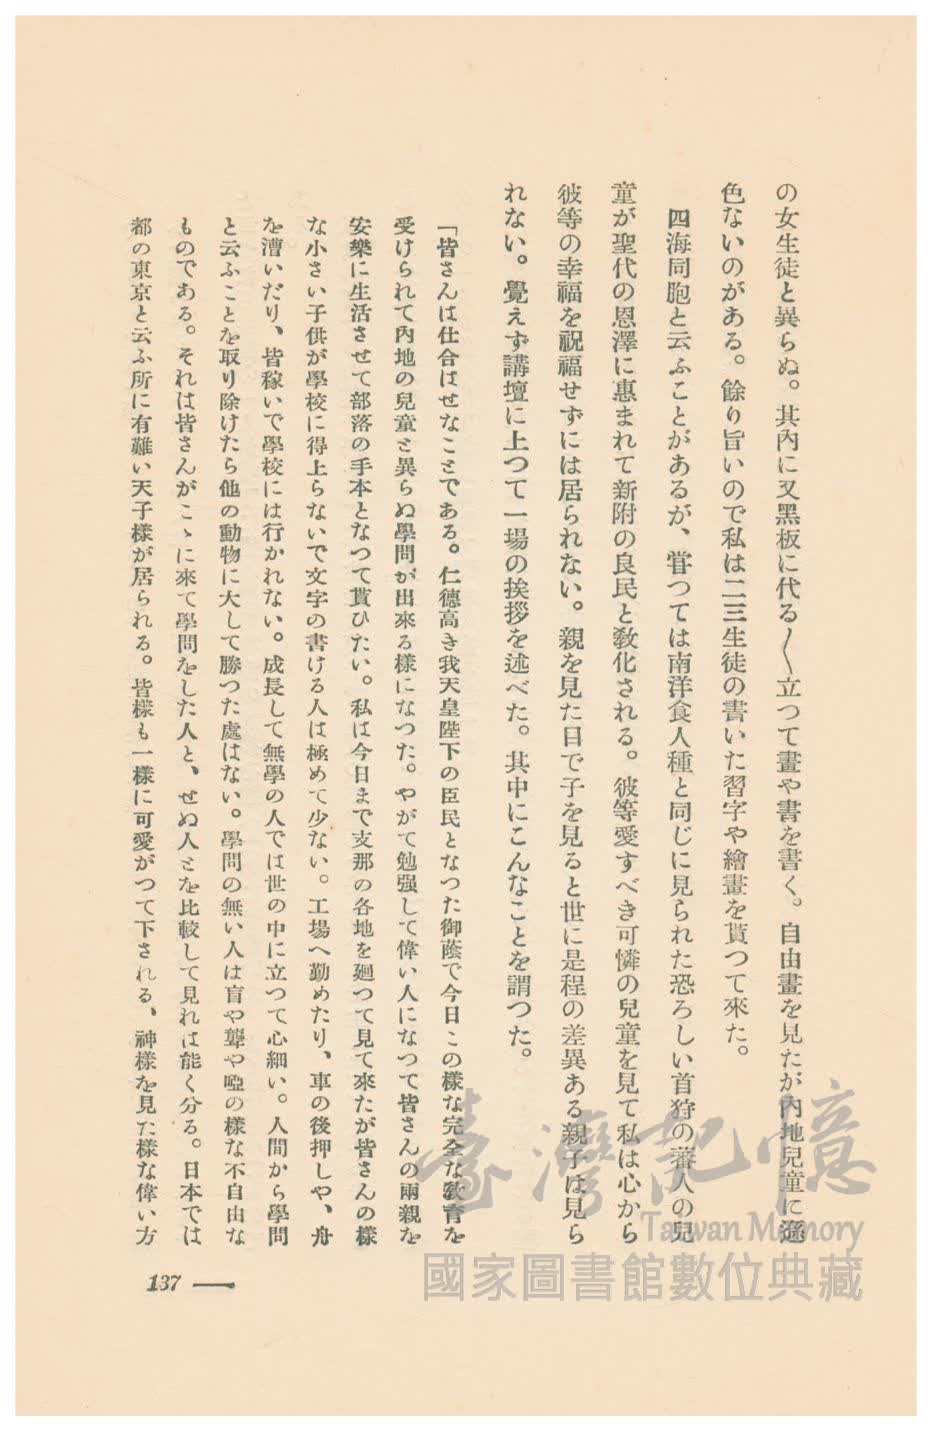 の女生徒と異らぬ。其內に又黑板に代る〱立つて畫や書を書く。自由畫を見たが內地兒童に遜
色ないのがある。餘り旨いので私は二三生徒の書いた習字や繪畫を貰つて來た。
四海同胞と云ふことがあるが、甞つては南洋食人種と同じに見られた恐ろしい首狩の蕃人の兒
童が聖代の恩澤に惠まれて新附の良民と敎化される。彼等愛すべき可憐の兒童を見て私は心から
彼等の幸福を祝福せずには居られない。親を見た目で子を見ると世に是程の差異ある親子は見ら
れない。覺えず講壇に上つて一場の挨拶を述べた。其中にこんなことを謂つた。
「皆さんは仕合はせなことである。仁德高き我天皇陛下の臣民となつた御蔭で今日この樣な完全な敎育を
受けられて內地の兒童と異らぬ學問が出來る樣になつた。やがて勉强して偉い人になつて皆さんの兩親を
安樂に生活させて部落の手本となつて貰ひたい。私は今日まで支那の各地を廻つて見て來たが皆さんの樣
な小さい子供が學校に得上らないで文字の書ける人は極めて少ない。工場へ勤めたり、車の後押しや、舟
を漕いだり、皆稼いで學校には行かれない。成長して無學の人では世の中に立つて心細い。人間から學問
と云ふことを取り除けたら他の動物に大して勝つた處はない。學問の無い人は盲や聾や啞の樣な不自由な
ものである。それは皆さんがこゝに來て學問をした人と、せぬ人とを比較して見れば能く分る。日本では
都の東京と云ふ所に有難い天子樣が居られる。皆樣も一樣に可愛がつて下される、神樣を見た樣な偉い方
137
臺灣記憶
Taiwan Memory
國家圖書館數位典藏